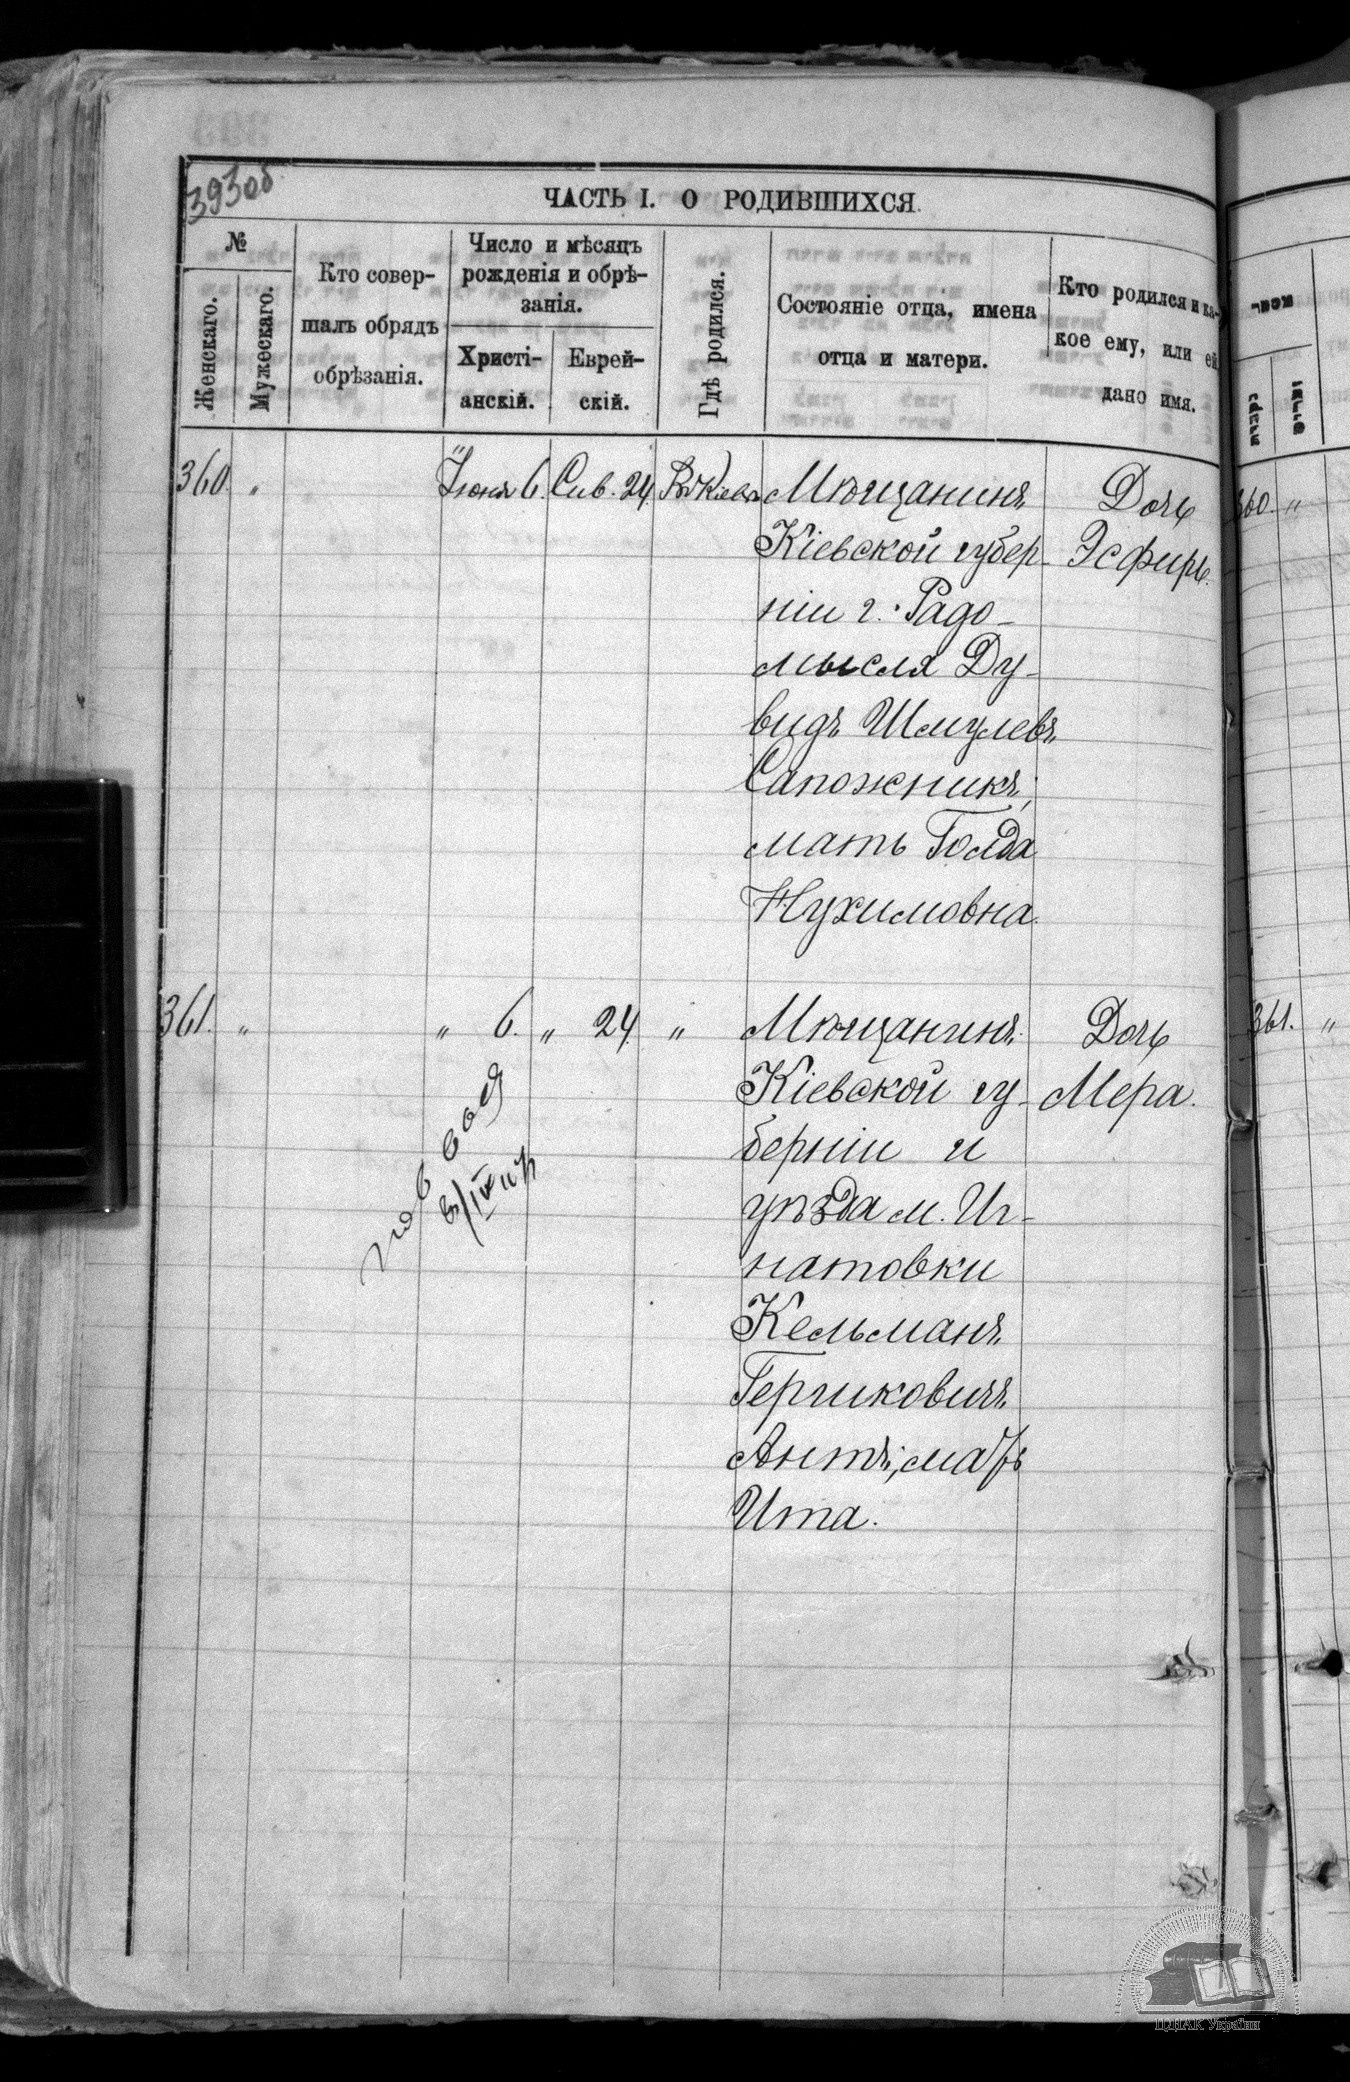 393об
ЧАСТЬ I. О РОДИВШИХСЯ.
№
Женскаго.
Мужескаго.
Кто совер-
шалъ обрядъ
обрѣзанія.
Число и мѣсяцъ
рожденія и обрѣ-
занія.
Христі-
анскій.
Еврей-
скій.
Гдѣ родился.
Состояніе отца, имена
отца и матери.
Кто родился и ка-
кое ему, или ей
дано имя.
360. " Іюня 6. Сив. 24. Въ Кіевѣ Мѣщанинъ Дочь
Кіевской губер- Эсфирь.
ніи г. Радо-
мысля Ду-
видъ Шмулевъ
Сапожникъ;
мать Голда
Нухимовна.
361. " " 6. " 24 " Мѣщанинъ Дочь
Кіевской гу- Мера.
берніи и
уѣзда м. Иг-
натовки
Кельманъ
Гершковичъ
Антъ, мать
Ита.
360. "
361. "
ЦДІАК України